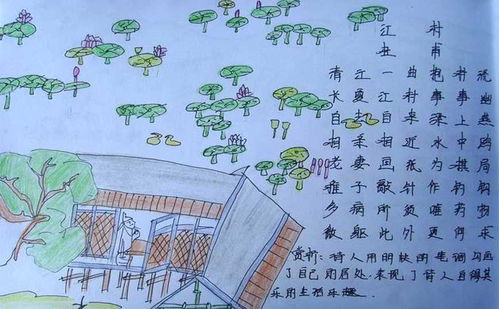 江村
杜甫
清江一曲抱村流
长夏江村事事幽
自去自来梁上燕
相亲相近水中鸥
老妻画纸为棋局
稚子敲针作钓钩
多病所须唯药物
微躯此外更何求
赏析:诗人用明快的笔调勾画
了自己的居处.表现了诗人自得其
乐的生活乐趣.